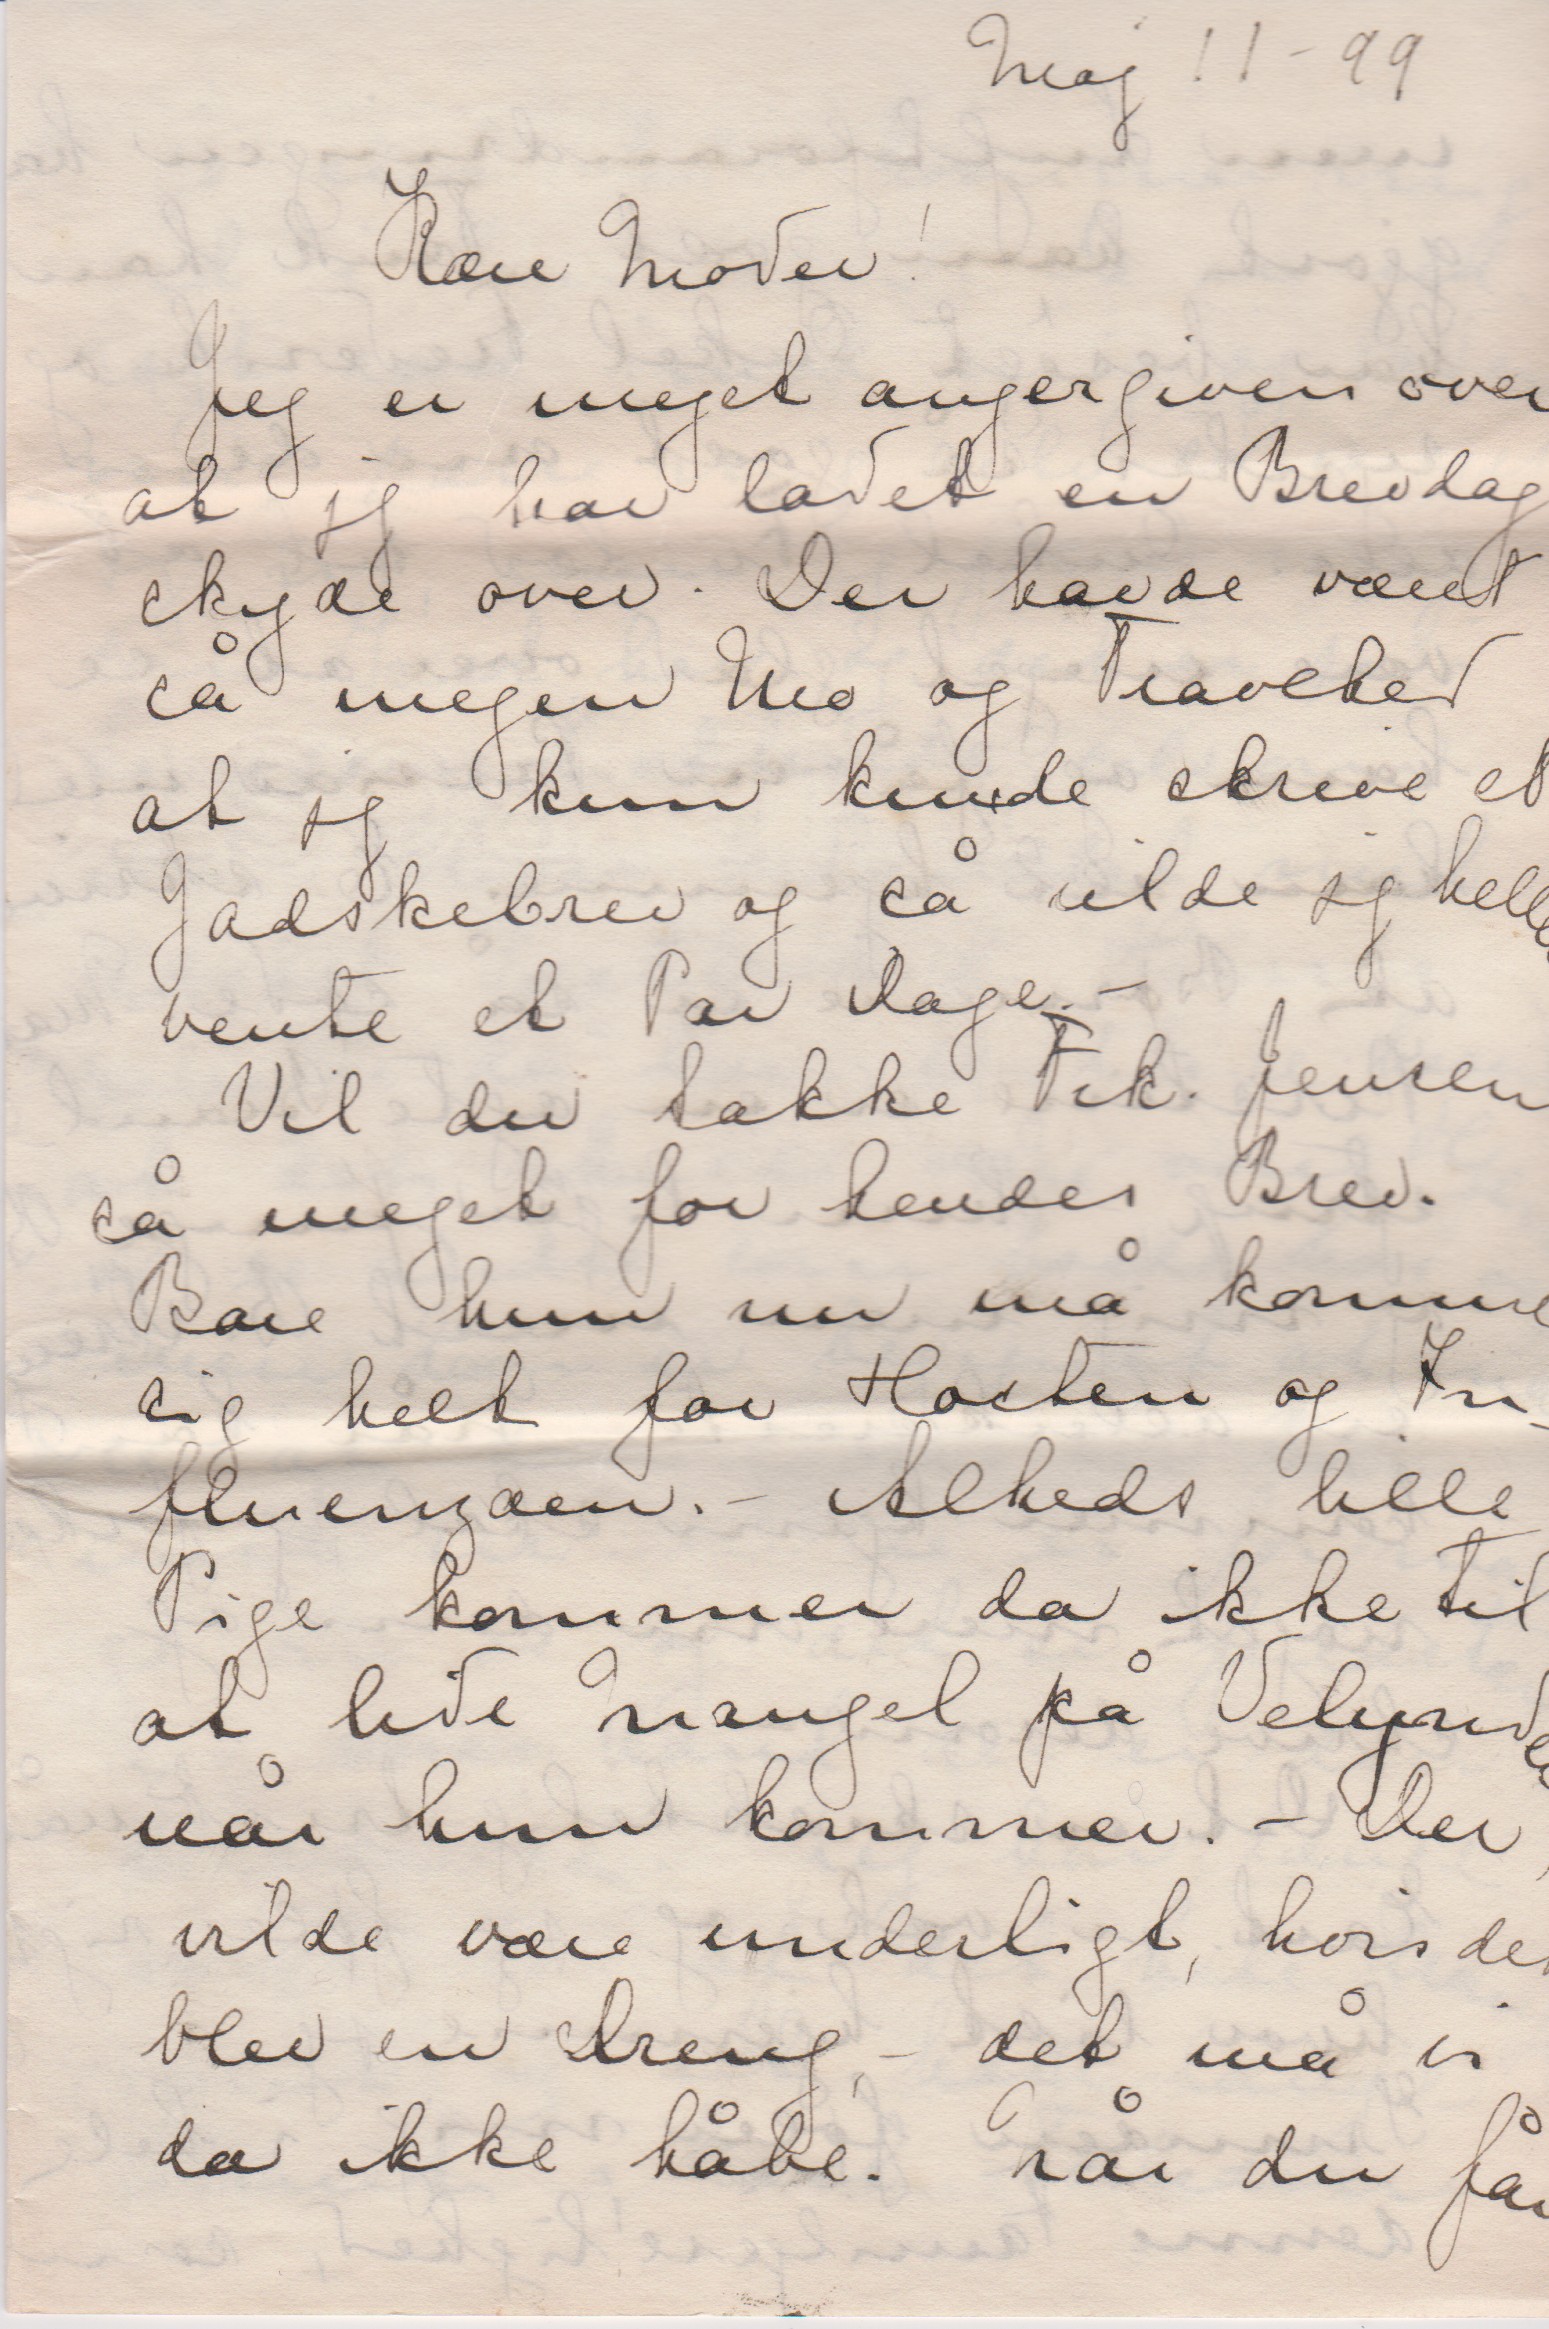 Maj 11-99
Kære Moder!
Jeg er meget angergiven over
at jg har ladet en Brevdag
skyde over. Der havde været
så megen Mo og Travlhed
at jg kun kunde skrive et
Jadskebrev og så vilde jg heller
vente et Par Dage.-
Vil du takke Frk. Jensen
så meget for hendes Brev.
Bare hun nu må komme
sig helt for Hosten og In-
fluenzaen.- Alheds lille
Pige kommer da ikke til
at lide Mangel på Velynder
når hun kommer. - Det
vilde være underligt, hvis det
blev en Dreng, - det må vi
da ikke håbe. Når du får